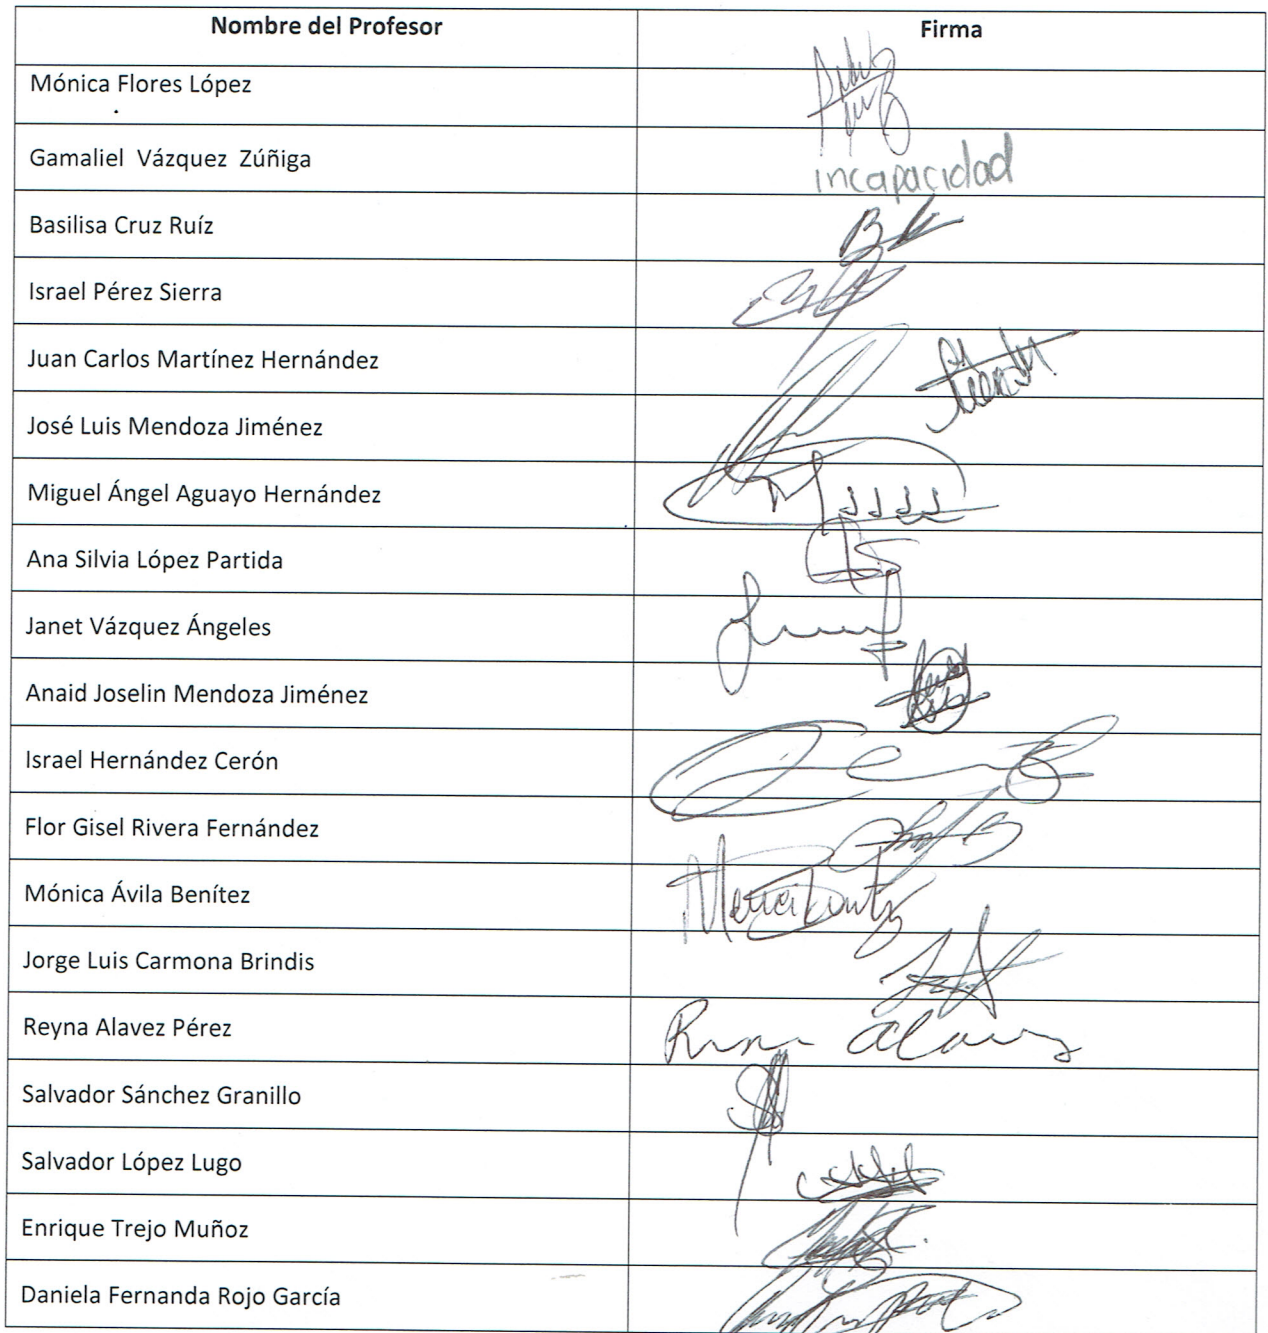 Nombre del Profesor Firma
Mónica Flores López
Gamaliel Vázquez Zúñiga incapacidad
Basilisa Cruz Ruíz
Israel Pérez Sierra
Juan Carlos Martínez Hernández
José Luis Mendoza Jiménez
Miguel Ángel Aguayo Hernández
Ana Silvia López Partida
Janet Vázquez Ángeles
Anaid Joselin Mendoza Jiménez
Israel Hernández Cerón
Flor Gisel Rivera Fernández
Mónica Ávila Benítez
Jorge Luis Carmona Brindis
Reyna Alavez Pérez
Salvador Sánchez Granillo
Salvador López Lugo
Enrique Trejo Muñoz
Daniela Fernanda Rojo García